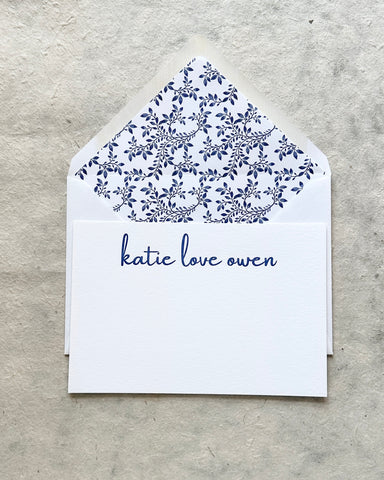 katie love owen